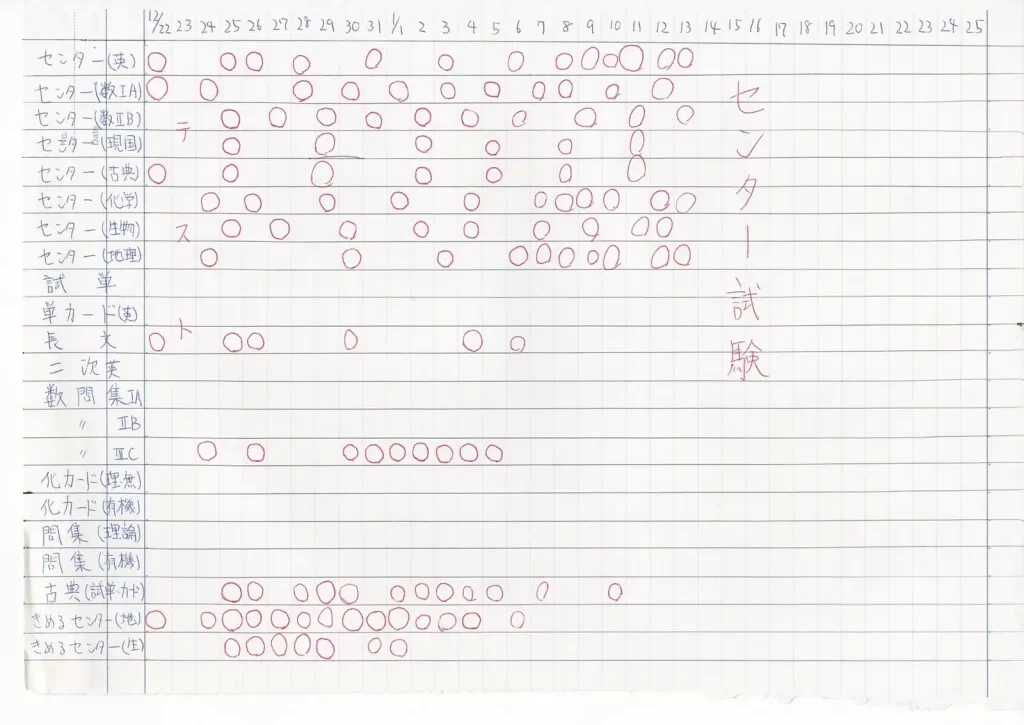 12/22 23 24 25 26 27 28 29 30 31 1/1 2 3 4 5 6 7 8 9 10 11 12 13 14 15 16 17 18 19 20 21 22 23 24 25
センター(英)
センター(数IA)
センター(数ⅡB)
センター(現国)
センター(古典)
センター(化学)
センター(生物)
センター(地理)
試単
単カード(英)
長文
二次英
数問集IA
〃 ⅡB
〃 ⅢC
化カード(理・無)
化カード(有機)
問集(理論)
問集(有機)
古典(試単・カード)
きめるセンター(地)
きめるセンター(生)
テスト
センター試験